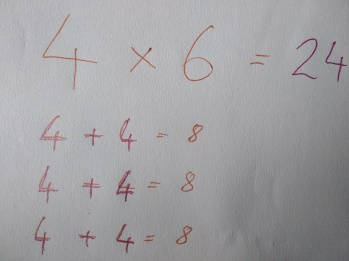 4 × 6 = 24
4 + 4 = 8
4 + 4 = 8
4 + 4 = 8